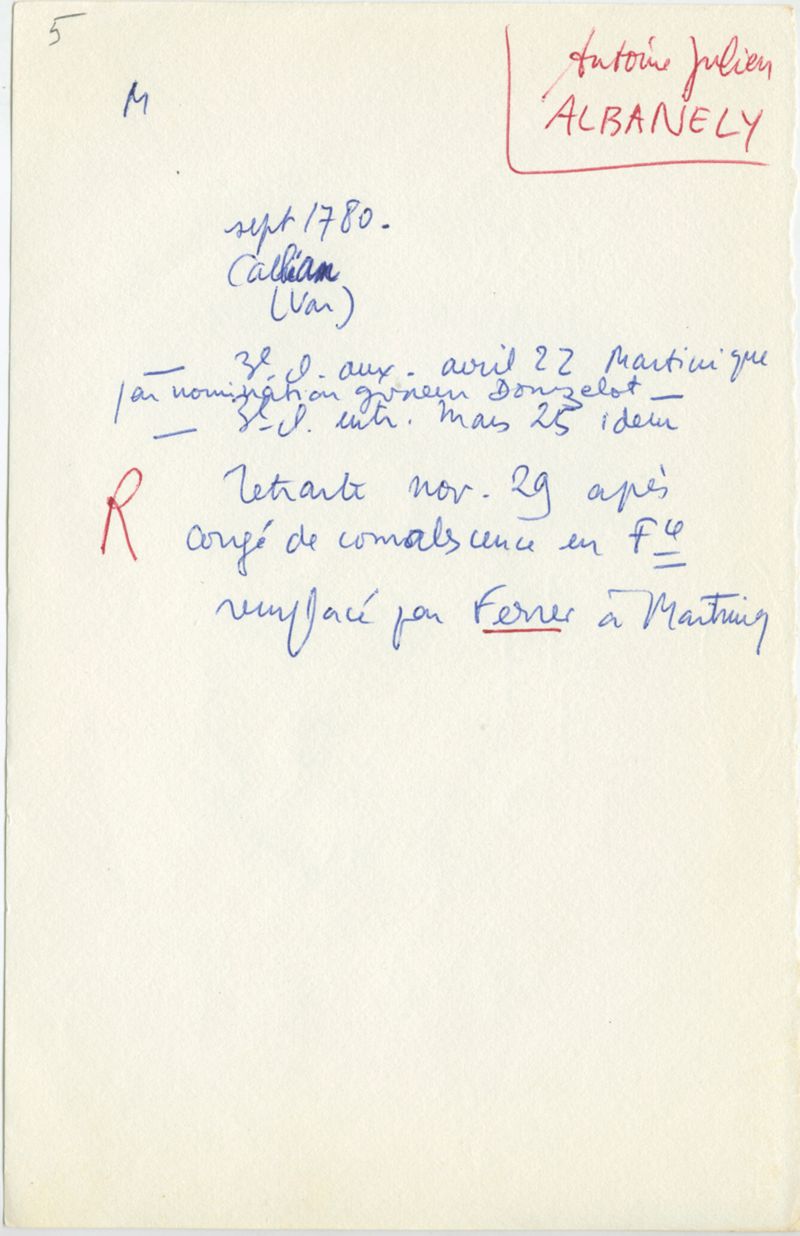 5
Antoine Julien
ALBANELY
M
sept 1780.
Callian
(Var)
— 3e cl. aux. avril 22 Martinique
par nomination gouverneur Donzelot —
— 3e cl. entr. Mars 25 idem
R
retraite nov. 29 après
congé de convalescence en Fce
remplacé par Ferrer à Martiniq